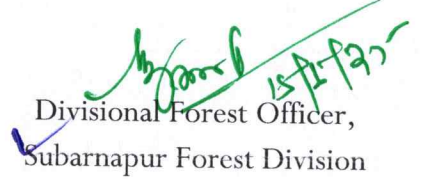 15/1/25
Divisional Forest Officer,
Subarnapur Forest Division